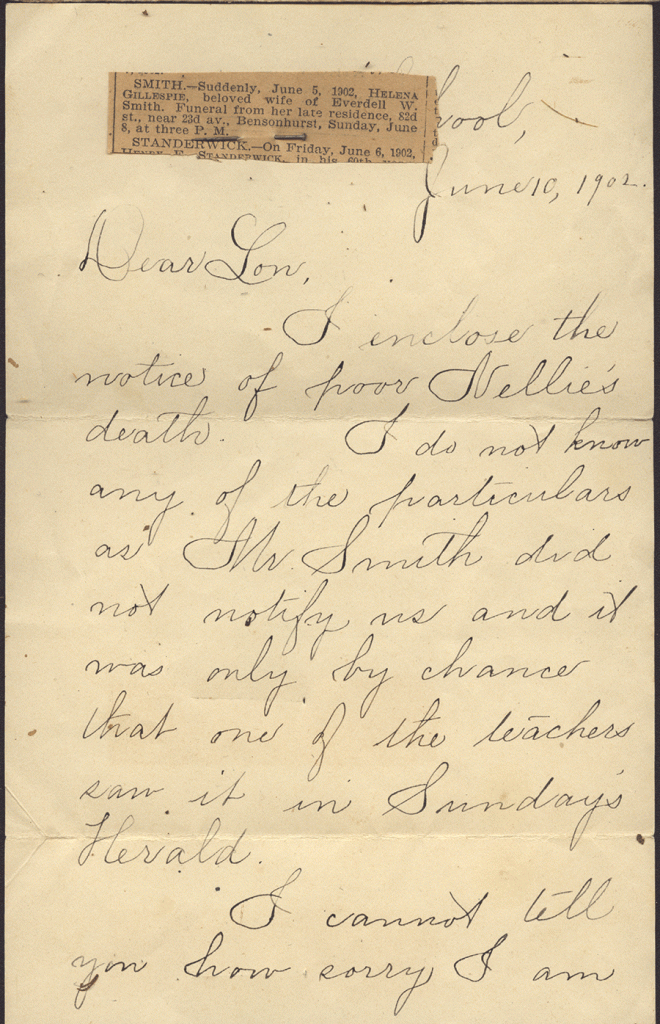 SMITH.—Suddenly, June 5, 1902, HELENA
GILLESPIE, beloved wife of Everdell W.
Smith. Funeral from her late residence, 82d
st., near 23d av., Bensonhurst, Sunday, June
8, at three P. M.
STANDERWICK.—On Friday, June 6, 1902,
HENRY E. STANDERWICK, in his 60th
hool,
June 10, 1902.
Dear Lon,
I enclose the
notice of poor Nellie's
death. I do not know
any of the particulars
as Mr. Smith did
not notify us and it
was only by chance
that one of the teachers
saw it in Sunday's
Herald.
I cannot tell
you how sorry I am